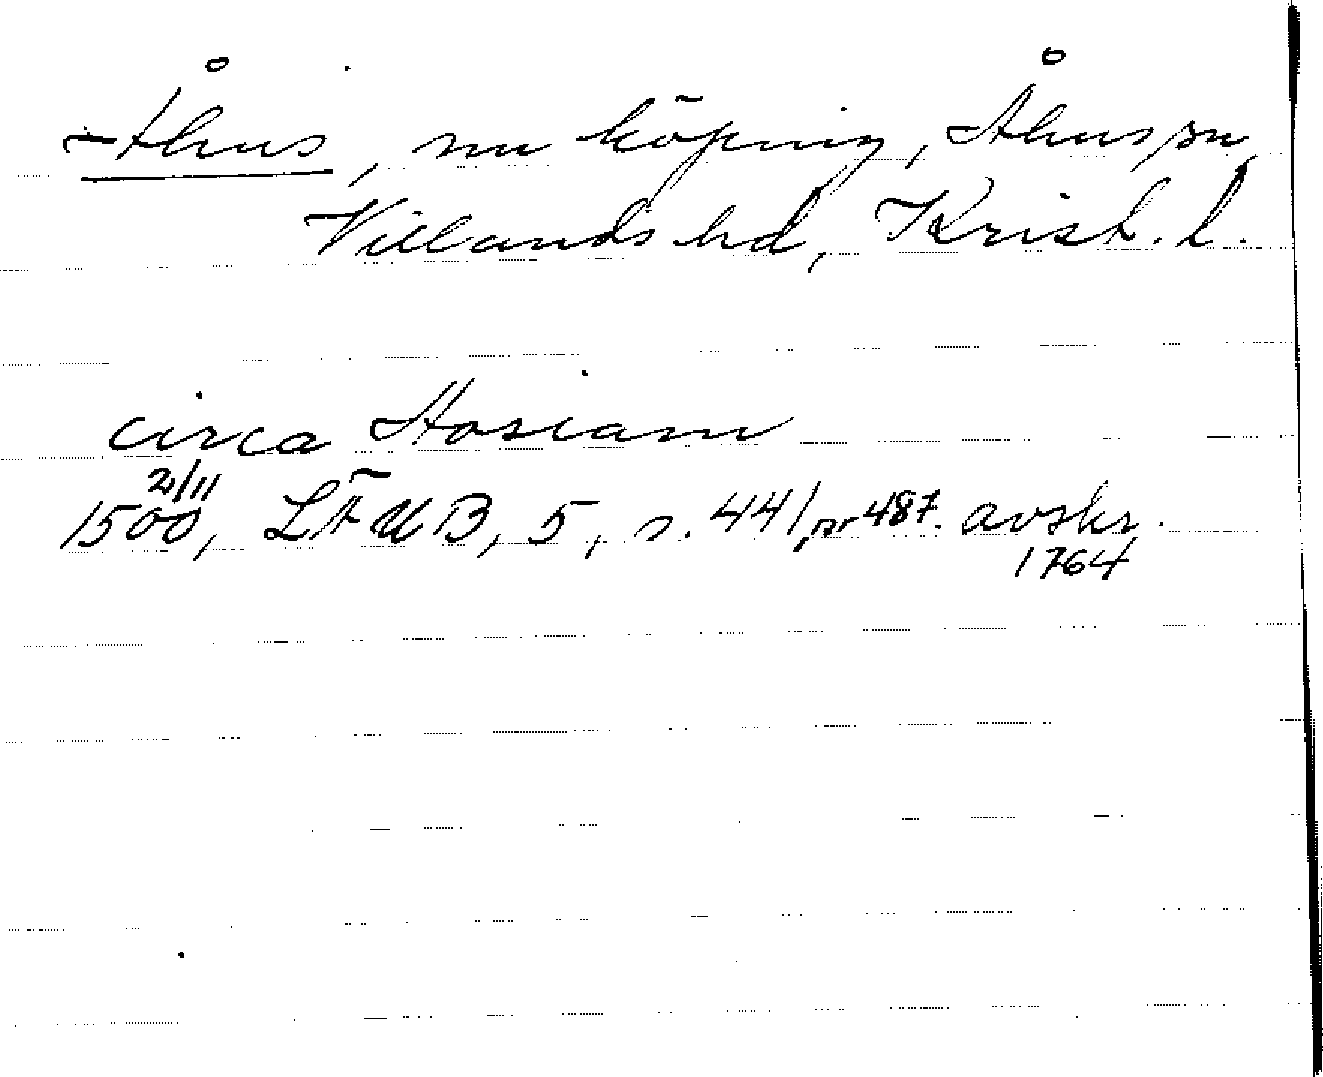 Åhus, nu köping, Åhus sn,
Villands hd, Krist. l.
circa Hosiam
2/11
1500, LÄUB, 5, s. 441, nr 487. avskr.
1764